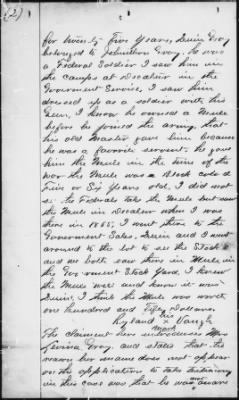 (2)
for twenty Five years, Lewis Gray
belonged to Johnithan Gray. He was
a Federal Soldier I saw him in
the camps at Decatur in the
Government Service, I saw him
dressed up as a soldier with his
Gun, I know he owned a Mule
before he joined the army, that
his old Master gave him because
he was a favorite servant, he gave
him the Mule in the time of the
war the Mule was a Black colored
Five or Six years old, I did not
see the Federals take the Mule but saw
the Mule in Decatur when I was
there in 1865, I went there to the
Government Sales, Lewis and I went
around to the lot to see the Stock &
and we both saw this Mule in
the Government Stock Yard, I knew
the Mule well and knew it was
Lewis, I think the Mule was worth
one hundred and Fifty Dollars.
his
Ryland x Vaugh
mark
The claimant here introduces Mrs
Levina Gray, and states that the
reason her name does not appear
on the application to take testimony
in this case was that he was aware